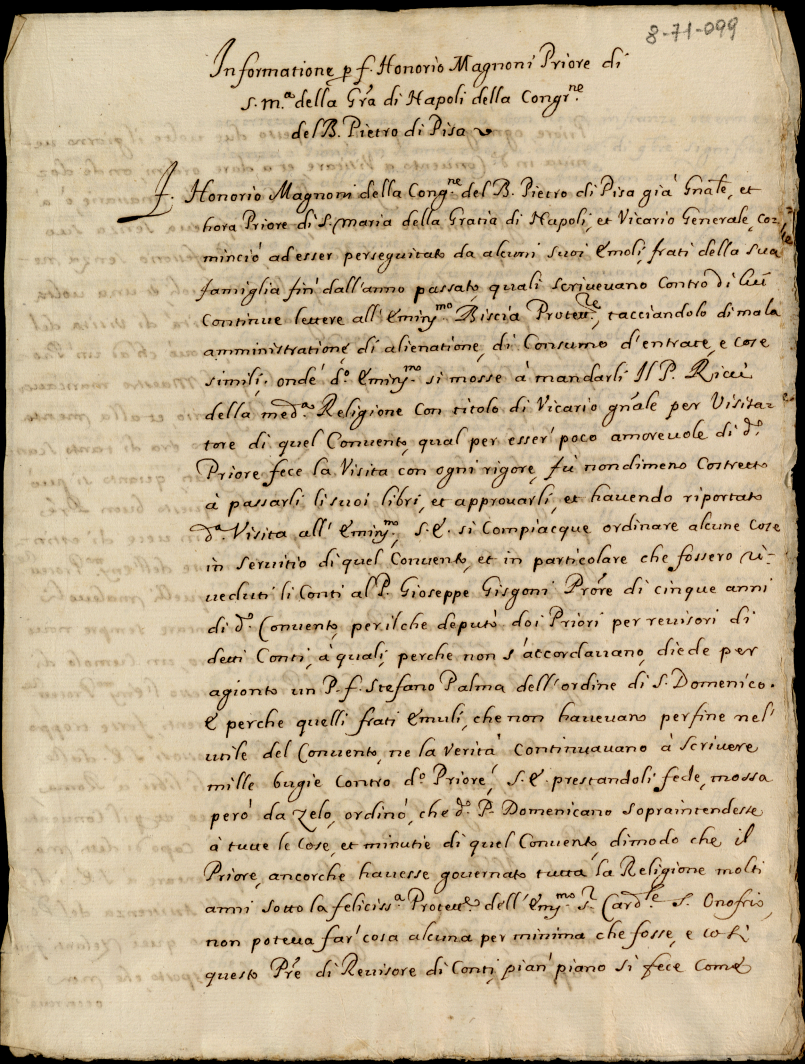 8-71-099
Informatione p f. Honorio Magnoni Priore di
S. m.ª della Grã di Napoli della Congr.ne
del B. Pietro di Pisa
F. Honorio Magnoni della Cong.ne del B. Pietro di Pisa già Gnãle, et
hora Priore di S. Maria della Gratia di Napoli, et Vicario Generale, co-
minciò ad esser perseguitato da alcuni suoi Emoli, frati della sua
famiglia fin' dall'anno passato, quali scriuevano contro di lui
continue lettere all'Emin.mo Biscia Protett.re, tacciandolo di mala
amministratione, di alienatione, di Consumo d'entrate, e cose
simili; onde d.º Emin.mo si mosse à mandarli Il P. Ricci
della med.ª Religione con titolo di Vicario gnãle per Visita-
tore di quel Convento, qual per esser' poco amoreuole di d.º
Priore fece la Visita con ogni rigore, fù nondimeno Costretto
à passarli li suoi libri, et approuarli, et hauendo riportato
d.ª Visita all' Emin.mo, S.E. si Compiacque ordinare alcune Cose
in seruitio di quel Conuento, et in particolare che fossero ri-
ueduti li Conti al P. Gioseppe Gisgoni Prõre di cinque anni
di d.º Conuento, per il che deputò doi Priori per reuisori di
detti Conti, à quali, perche non s'accordauano, diede per
agionto un P. f. Stefano Palma dell'ordine di S. Domenico.
E perche quelli frati Emuli, che non haueuano per fine nel'
utile del Conuento, ne la Verità continuauano à scriuere
mille bugie contro d.º Priore, S.E. prestandoli fede, mossa
però da zelo, ordinò, che d.º P. Domenicano sopraintendesse
à tutte le Cose, et minutie di quel Conuento, dimodo che il
Priore, ancorche hauesse gouernato tutta la Religione molti
anni sotto la feliciss.ª Protett.e dell'Em.mo S.r Card.le S. Onofrio,
non poteua far' cosa alcuna per minima che fosse, e così
questo Prê di Reuisore di Conti, pian' piano si fece come